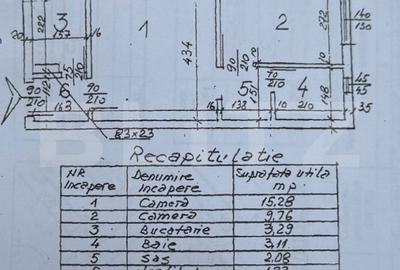 3
1
2
222
20
157
16
434
272
140
130
75
210
90
210
10
90
210
6
112
90
210
70
210
5
4
157
148
45
45
163
16
138
10
210
35
23x23
Recapitulatie
NR Incapere
Denumire incapere
Suprafata utila m.p.
1 Camera 15,28
2 Camera 9,76
3 Bucatarie 3,29
4 Baie 3,11
5 sas 2,08